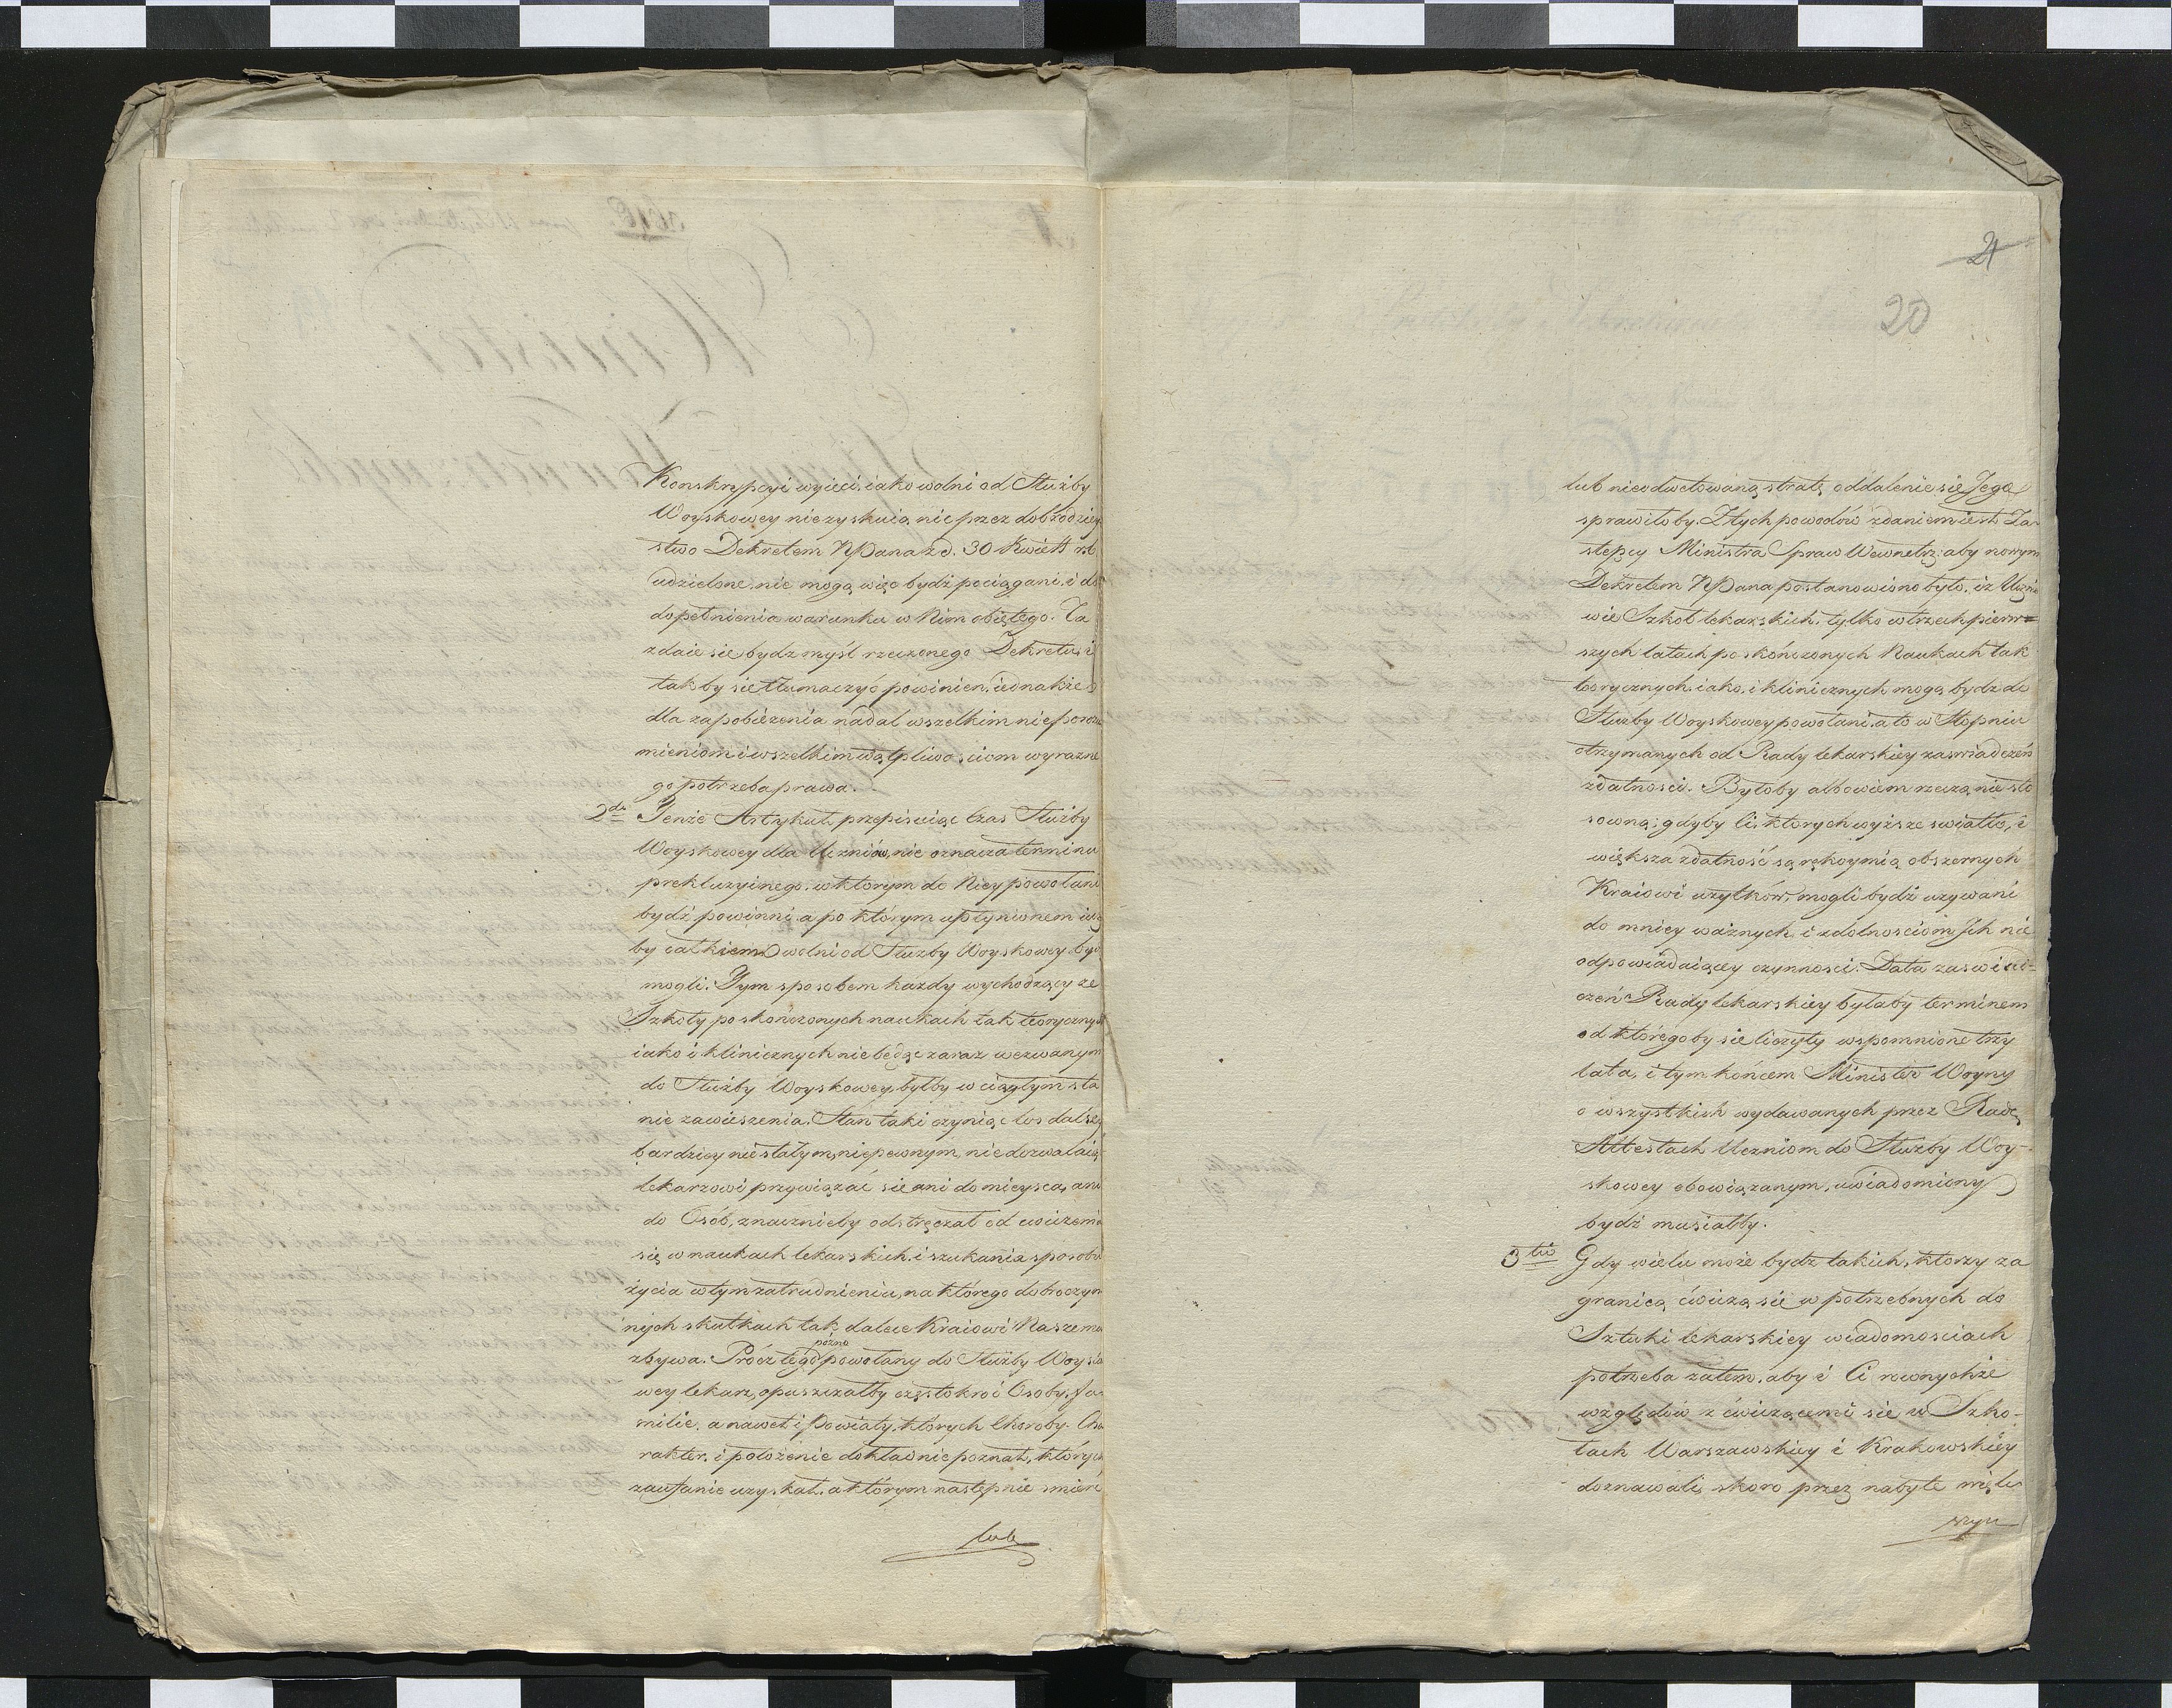 Konskrypcyi wyięci, iako wolni od Służby
Woyskowey niezyskuią nic przez dobrodziey
stwo Dekretem NPana z d. 30 Kwiet. rb.
udzielone, nie mogą więc bydź pociągani i do
dopełnienia warunku w Nim obiętego. Ta
zdaie się bydz myśl rzeczonego Dekretu, i
tak by się tłumaczyć powinien, iednakże
dla zapobieżenia nadal wszelkim nieporozu
mieniom i wszelkim wątpliwościom wyraźne
go potrzeba prawa.
2do Tenże Artykuł przepisuiąc Czas Służby
Woyskowey dla Uczniów, nie oznacza terminu
prekluzyinego, w którym do Niey powołani
bydź powinni, a po którym upłynionem iuż
by całkiem wolni od Służby Woyskowey być
mogli. Tym sposobem każdy wychodzący ze
Szkoły po skończonych naukach tak teorycznych
iako i klinicznych nie będąc zaraz wezwanym
do Służby Woyskowey, byłby w ciągłym sta
nie zawieszenia. Stan taki czyniąc los dalszy
bardziey niestałym, niepewnym, niedozwalaiąc
lekarzowi przywiązać się ani do mieysca, ani
do Osób, znacznieby odstręczał od ćwiczenia
się w naukach lekarskich, i szukania sposobu
życia w tym zatrudnieniu, na którego dobroczyn
nych skutkach tak dalece Kraiowi Naszemu
późno
zbywa. Prócz tego powołany do Służby Woysko
wey lekarz, opuszczałby częstokroć Osoby, fa
milie, a nawet i powiaty, których Choroby, Cha
rakter, i położenie dokładnie poznał, których
zaufanie uzyskał, a którym następnie śmierć
lub
21
20
lub nieodwetowaną stratę oddalenie się Jego
sprawiłoby. Z tych powodów zdaniem iest Za
stępcy Ministra Spraw Wewnętrz: aby nowym
Dekretem NPana postanowiono było, iż Ucznio
wie Szkół lekarskich, tylko w trzech pierw=
szych latach po skończonych Naukach tak
teorycznych iako i klinicznych mogą bydz do
Służby Woyskowey powołani, a to w Stopniu
otrzymanych od Rady lekarskiey zaświadczeń
zdatności. Byłoby albowiem rzeczą niesto
sowną, gdyby Ci, których wyższe światło, i
większa zdatność są rękoymią obszernych
Kraiowi użytków, mogli bydź używani
do mniey ważnych, i zdolnościom Ich nie
odpowiadaiącey czynności. Data zaświad=
czeń Rady lekarskiey byłaby terminem
od któregoby się liczyły wspomnione trzy
lata, i tym końcem Minister Woyny
o wszystkich wydawanych przez Radę
Attestach Uczniom do Służby Woy-
skowey obowiązanym, uwiadomiony
bydź musiałby.
3tio Gdy wielu może bydz takich, którzy za
granicą ćwiczą się w potrzebnych do
Sztuki lekarskiey wiadomościach
potrzeba zatem, aby i Ci równychże
względów z ćwiczącemi się w Szko-
łach Warszawskiey i Krakowskiey
doznawali, skoro przez nabyte w